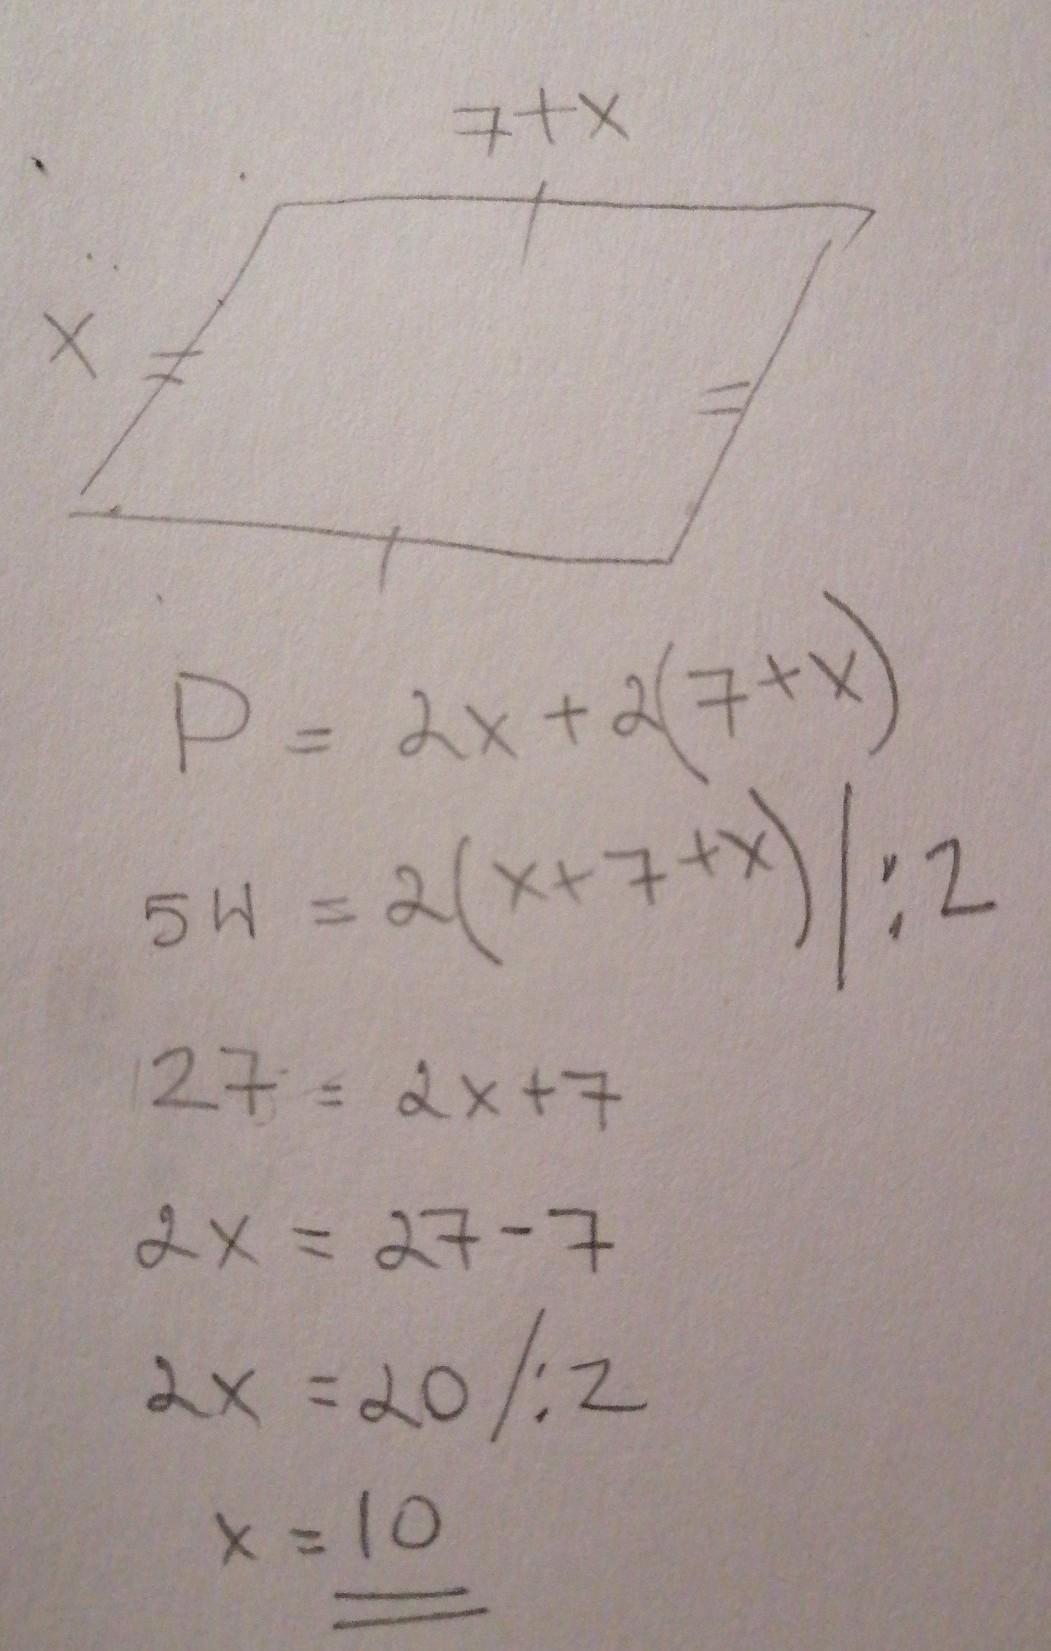 7+x
x
P = 2x+2(7+x)
54 = 2(x+7+x) |:2
27 = 2x+7
2x = 27-7
2x = 20 /:2
x = 10